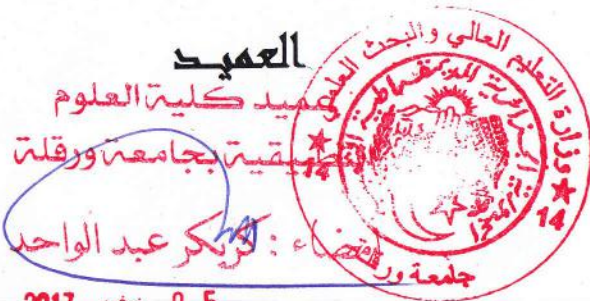 العميد
عميد كلية العلوم
التطبيقية بجامعة ورقلة
إمضاء : كريكر عبد الواحد
وزارة التعليم العالي والبحث العلمي
الجمهورية الجزائرية الديمقراطية الشعبية
14
جامعة ور
2017